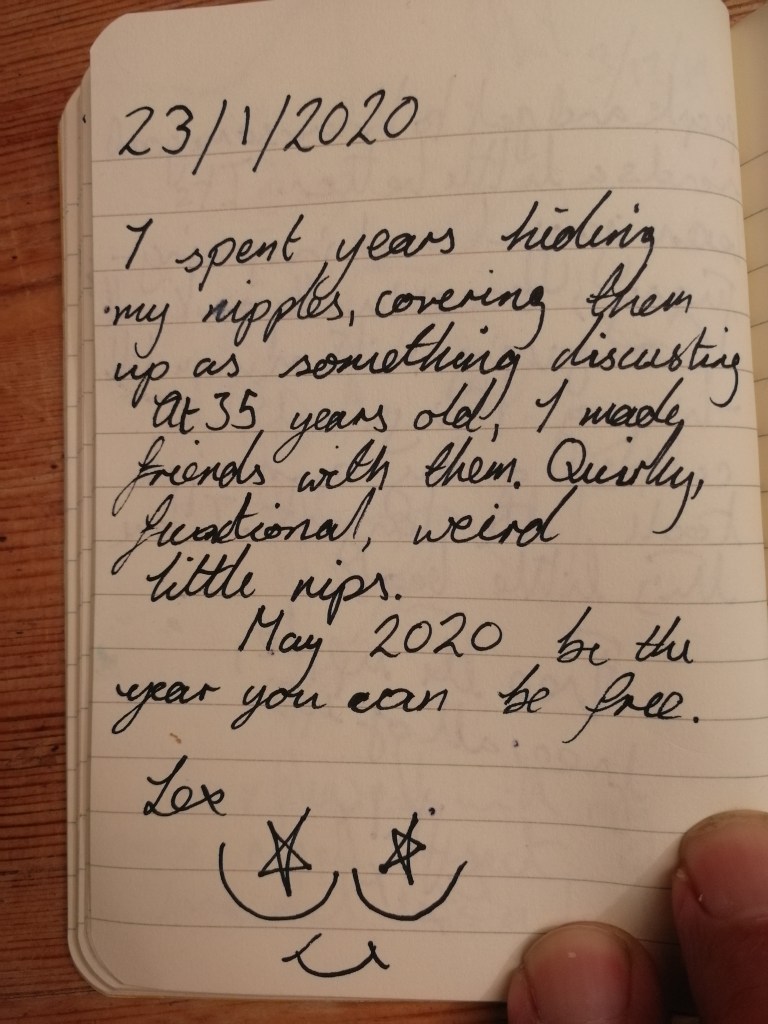 23/1/2020
I spent years hiding
my nipples, covering them
up as something discusting
At 35 years old, I made
friends with them. Quirky,
functional, weird
little nips.
May 2020 be the
year you can be free.
Lex